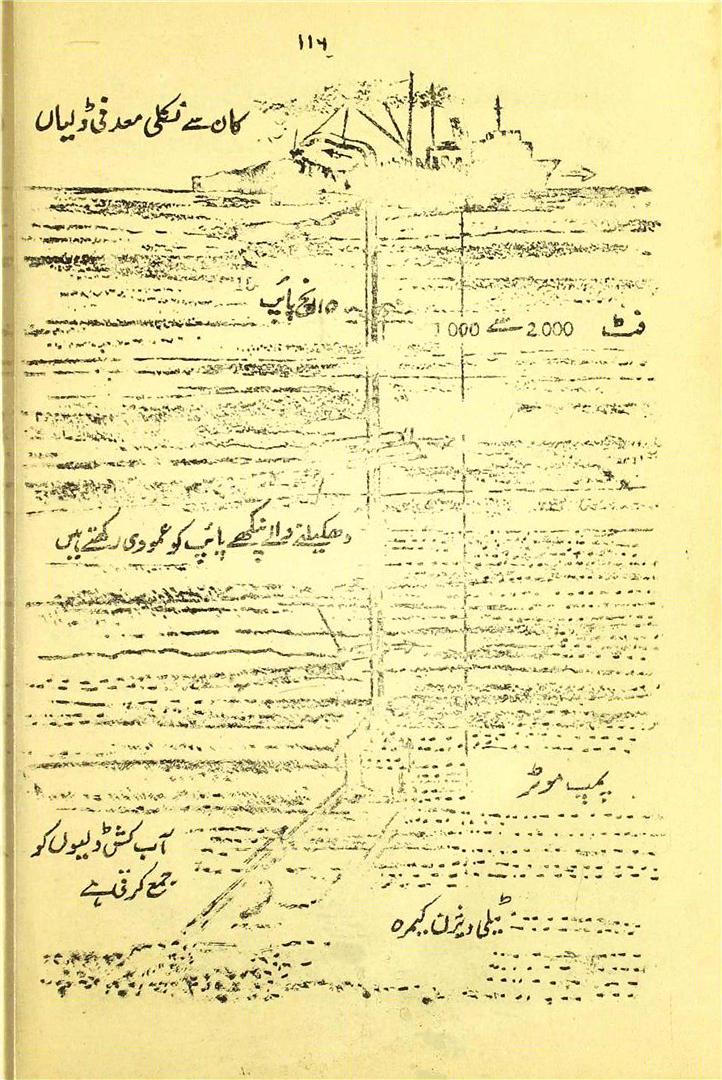 ۱۱۶
کان سے نکلی معدنی ڈلیاں
انچ پائپ
فٹ 2000 سے 1000
دھکیلنے والے پنکھے پائپ کو عمودی رکھتے ہیں
پمپ موٹر
آب کش ڈلیوں کو
جمع کرتی ہے
ٹیلی ویژن کیمرہ